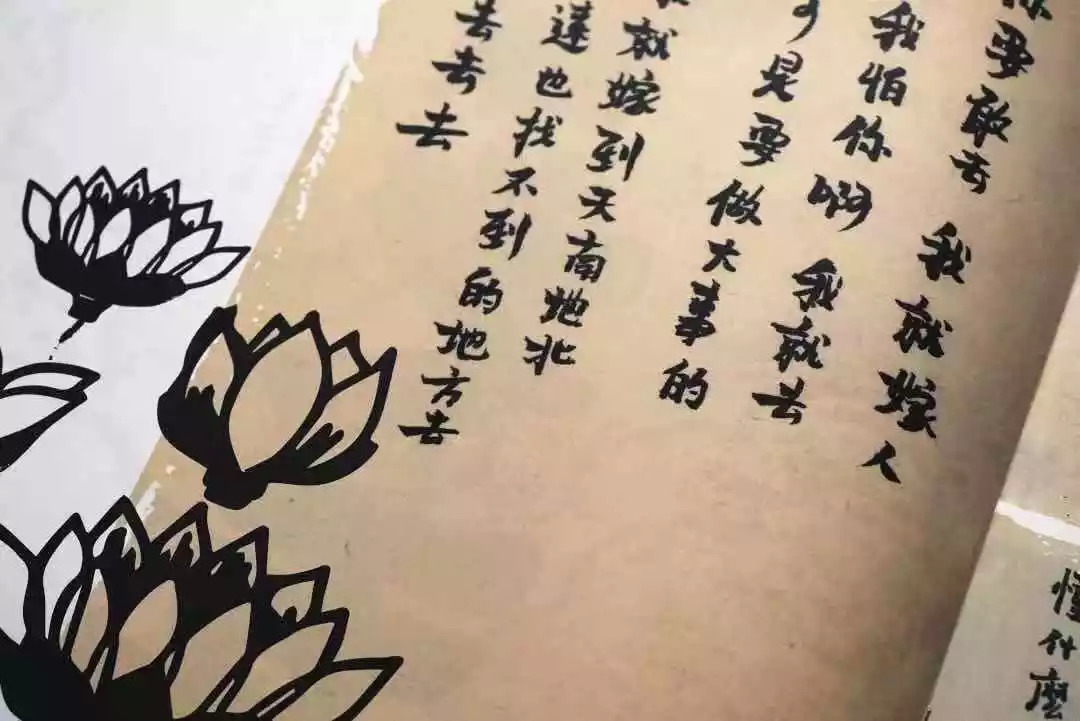 要敢去 我就嫁人
我怕你啊 我就去
是要做大事的
就嫁到天南地北
蓮也找不到的地方去
去去去
懂什麼